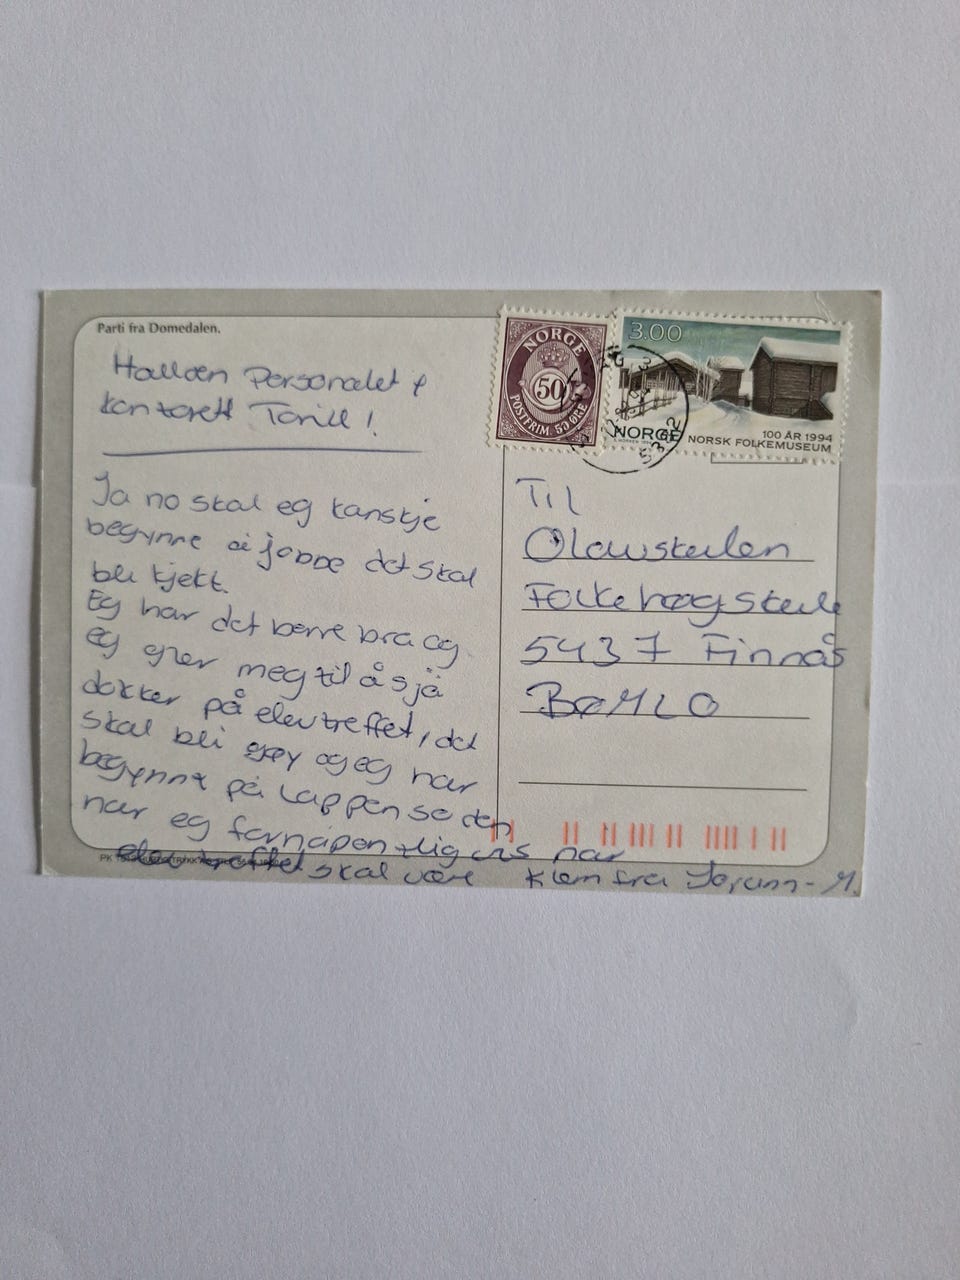 Parti fra Domedalen.
Halloen Personalet &
kontorett Torill!
Ja no skal eg kanskje
begynne å jobbe det skal
bli kjekt.
Eg har det berre bra og
eg grer meg til å sjå
dokker på elevtreffet, det
skal bli gøy og eg har
begynnt på lappen so den
har eg forhåpentligvis når
elevtreffet skal vøre
Klem fra Jorunn-M.
NORGE
50
POSTFRIM. 50 ØRE
3.00
NORGE
100 ÅR 1994
NORSK FOLKEMUSEUM
Til
Olavskulen
Folkehøgskule
5437 Finnås
BØMLO